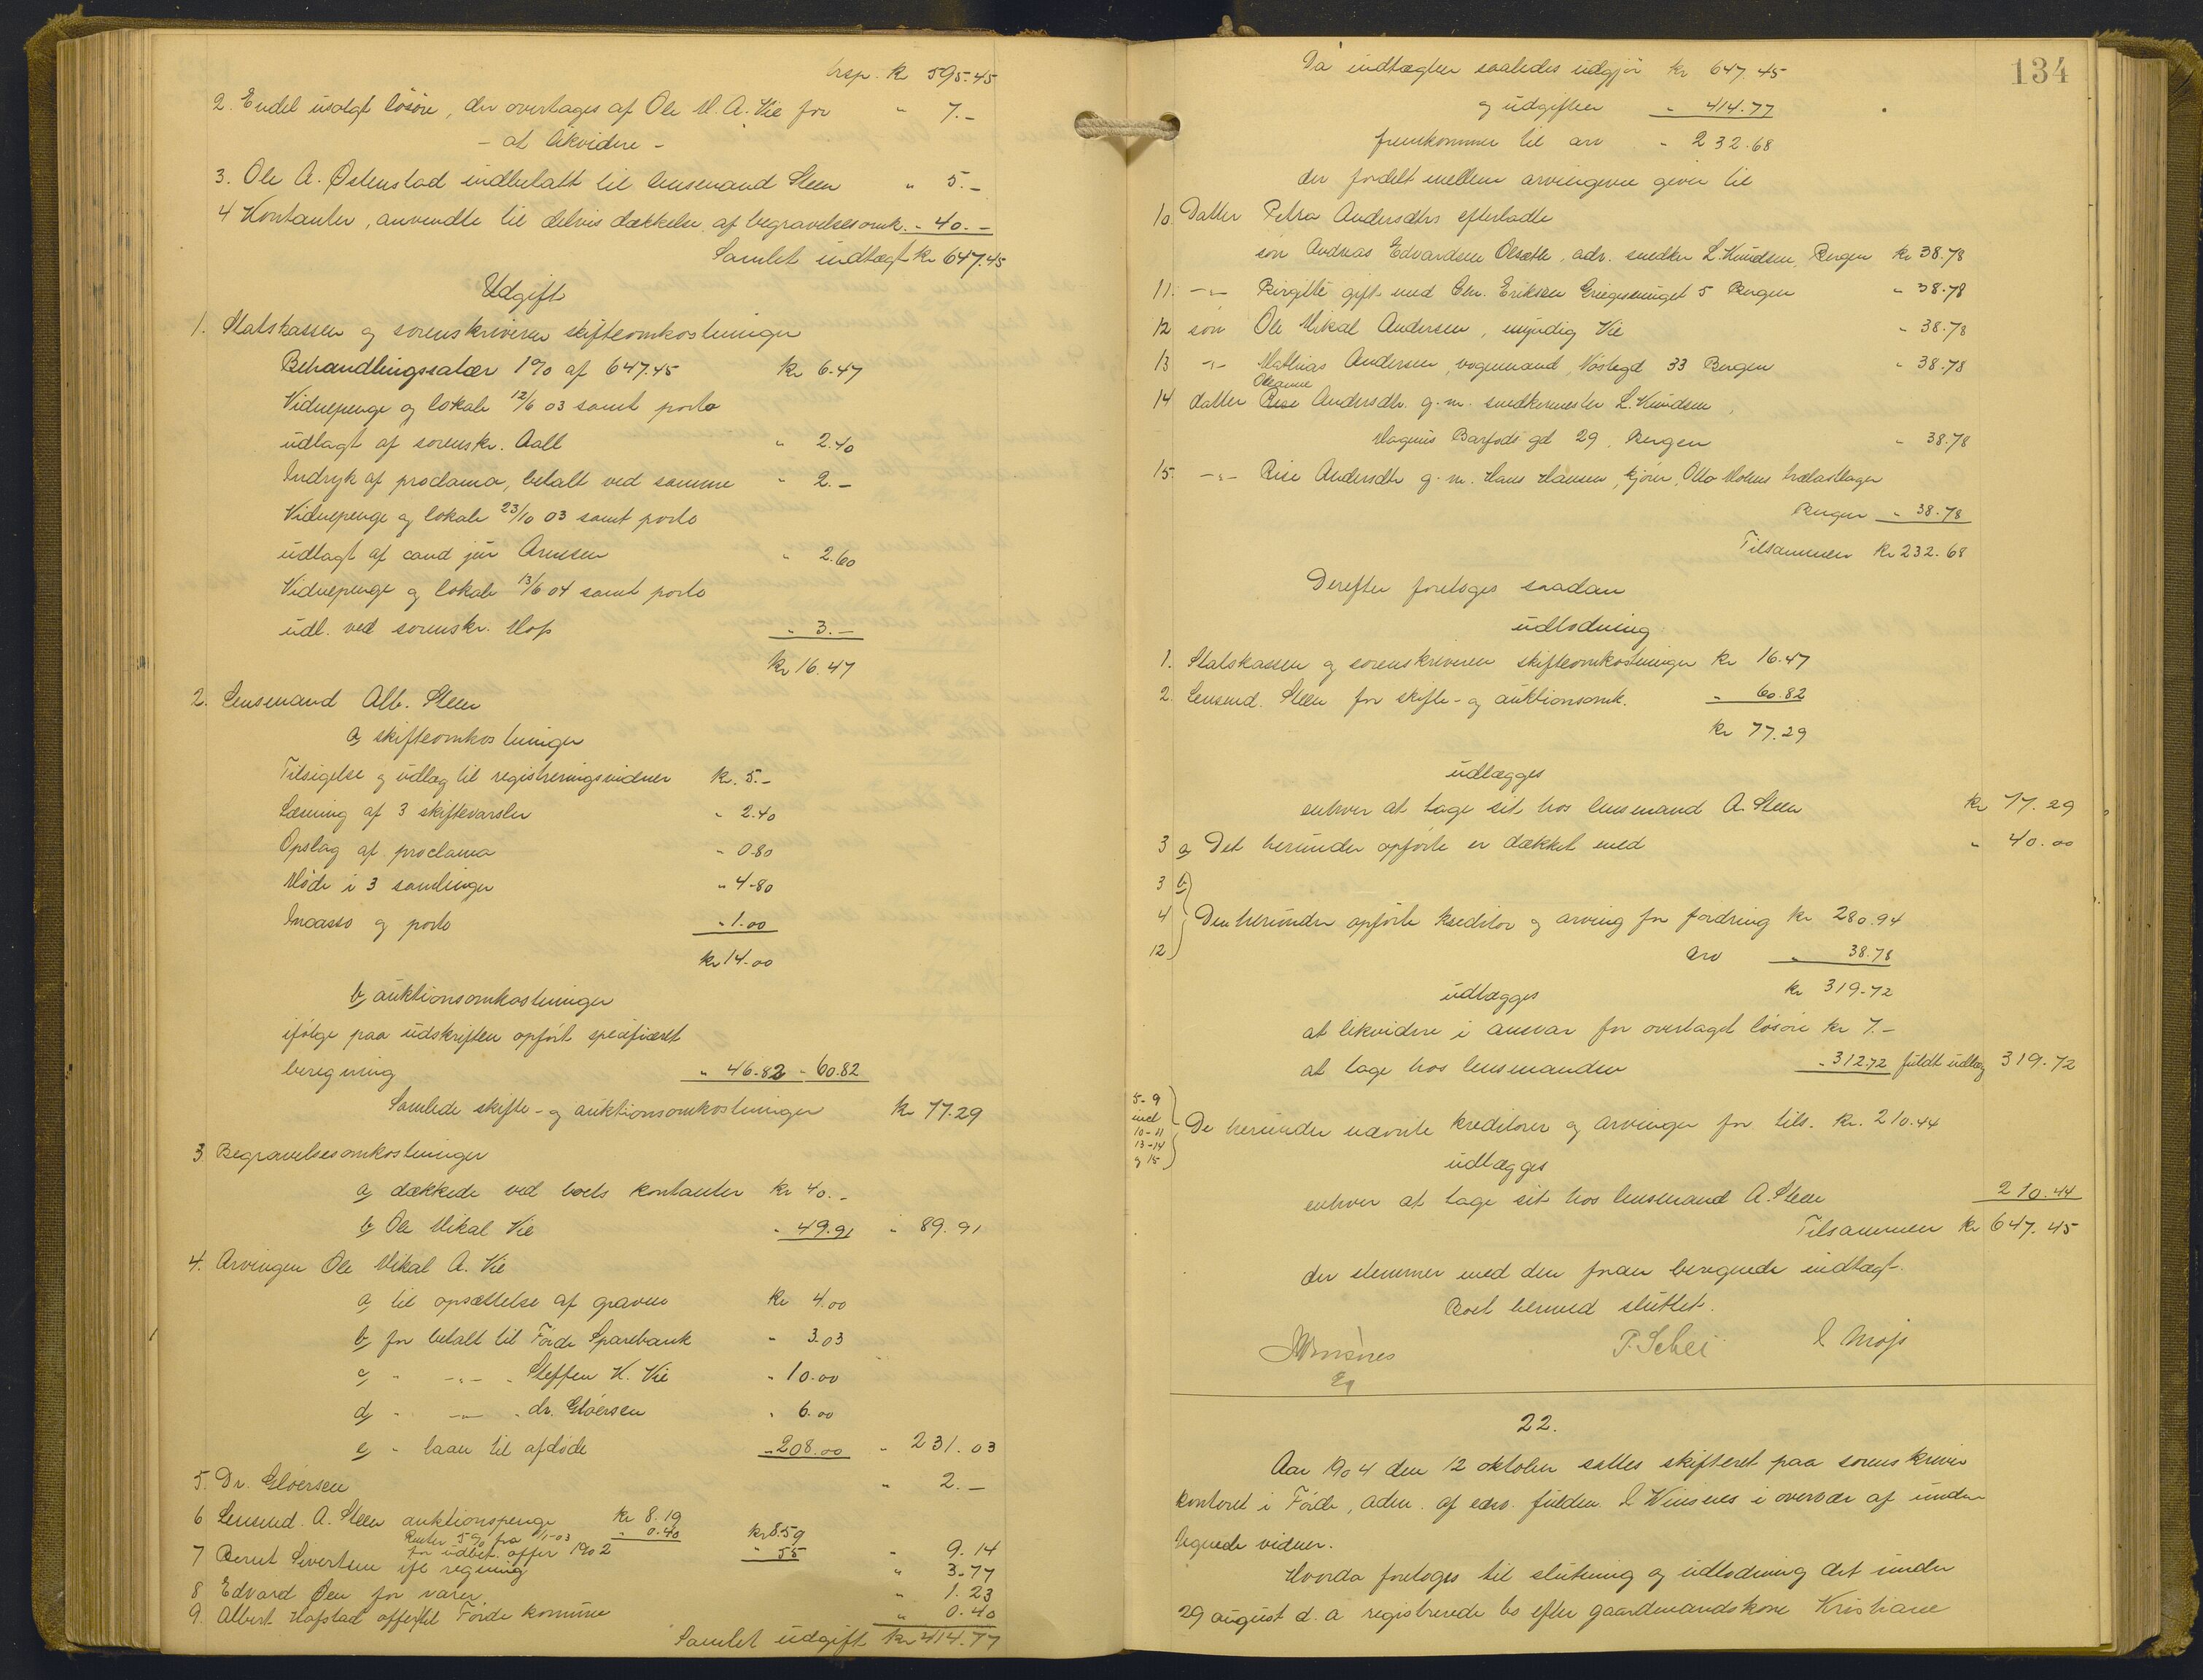 trsp. Kr 595.45
2. Endel usolgt lösöre, der overtages af Ole M. A. Vie for " 7.-
- at likvidere -
3. Ole A. Østenstad indbetalt til lensmand Steen " 5.-
4 Kontanter, anvendte til delvis dækkelse af begravelsesomk. - 40.-
Samlet indtægt kr 647.45
Udgift
1. Statskassen og sorenskriveren skifteomkostninger
Behandlingssalær 1% af 647.45 kr 6.47
Vidnepenge og lokale 12/6 03 samt porto
udlagt af sorenskr. Aall " 2.40
Indryk af proclama, betalt ved samme " 2.-
Vidnepenge og lokale 23/10 03 samt porto
udlagt af cand jur Arnesen " 2.60
Vidnepenge og lokale 13/6 04 samt porto
udl. ved sorenskr. Mop " 3.-
kr 16.47
2. Lensmand Alb. Steen
a) skifteomkostninger
Tilsigelse og udlæg til registreringsvidner kr. 5.-
Læsning af 3 skiftevarsler " 2.40
Opslag af proclama - 0.80
Möde i 3 samlinger " 4.80
Incasso og porto - 1.00
kr 14.00
b) auktionsomkostninger
ifölge paa udskriften opfört specificeret
beregning " 46.82 - 60.82
Samlede skifte- og auktionsomkostninger kr 77.29
3 Begravelsesomkostninger
a) dækkede ved boets kontanter kr 40.-
b) Ole Mikal Vie - 49.91 " 89.91
4. Arvingen Ole Mikal A. Vie
a) til opsættelse af graven kr 4.00
b) for betalt til Förde Sparebank " 3.03
c) " -"- " Steffen K. Vie " 10.00
d) " -"- " dr. Gloersen " 6.00
e) " laan til afdöde - 208.00 " 231.03
5. Dr. Gloersen " 2.-
6 Lensmd. A. Steen auktionspenge kr 8.19
Renter 5% fra 1/1-03 " 0.40 kr 8.59
for udbet. offer 1902 " 55 " 9.14
7 Bernt Sivertsen ifl regning " 3.77
8 Edvard Øen for varer " 1.23
9. Albert Hafstad offer til Förde kommune " 0.40
Samlet udgift kr 414.77
134
Da indtægten saaledes udgjör kr 647.45
og udgiften " 414.77
fremkommer til arv " 232.68
der fordelt mellem arvingerne giver til
10. Datter Petra Andersdtrs efterladte
sön Andreas Edvardsen Olsæth, adr. snedker L. Knudsen, Bergen kr 38.78
11. -"- Birgitte gift med Chr. Eriksen Griegsmuget 5 Bergen " 38.78
12 sön Ole Mikal Andersen, myndig Vie " 38.78
13 -"- Mathias Andersen, vognmand, Nöstegd 33 Bergen " 38.78
Oleanne
14 datter Rise Andersdtr. g. m. snedkermester L. Knudsen,
Magnus Barfods gd 29, Bergen " 38.78
15. -"- Rise Andersdtr g. m. Hans Hansen, kjörer, Otto Mohns trælastlager
Bergen " 38.78
Tilsammen Kr 232.68
Derefter foretoges saadan
udlodning
1. Statskassen og sorenskriveren skifteomkostninger kr 16.47
2. Lensmd. Steen for skifte- og auktionsomk. " 60.82
kr 77.29
udlægges
enhver at tage sit hos lensmand A. Steen kr 77.29
3 a) Det herunder opförte er dækket med " 40.00
3 b)
4 Den herunder opförte kreditor og arving for fordring kr 280.94
12 arv " 38.78
udlægges kr 319.72
at likvidere i ansvar for overtaget lösöre kr 7.-
at tage hos lensmanden - 312.72 fuldt udlæg 319.72
5-9
incl
10-11
13-14
og 15
De herunder nævnte kreditorer og arvinger for tils. kr. 210.44
udlægges
enhver at tage sit hos lensmand A. Steen 210.44
Tilsammen kr 647.45
der stemmer med den foran beregnede indtægt.
Boet hermed sluttet.
P. Schei
22.
Aar 1904 den 12 oktober sattes skifteret paa sorenskriver
kontoret i Förde, adm. af edsv. fuldm. L Winsnes i overvær af under
tegnede vidner.
Hvorda foretoges til slutning og udlodning det under
29 august d. a registrerede bo efter gaardmandskone Kristiane